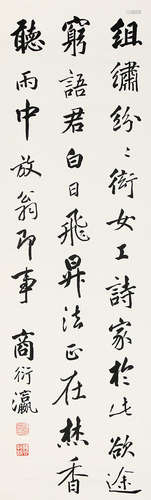 組繡紛〻衒女工詩家於此欲途
窮語君白日飛昇法正在焚香
聽雨中 放翁即事 商衍瀛